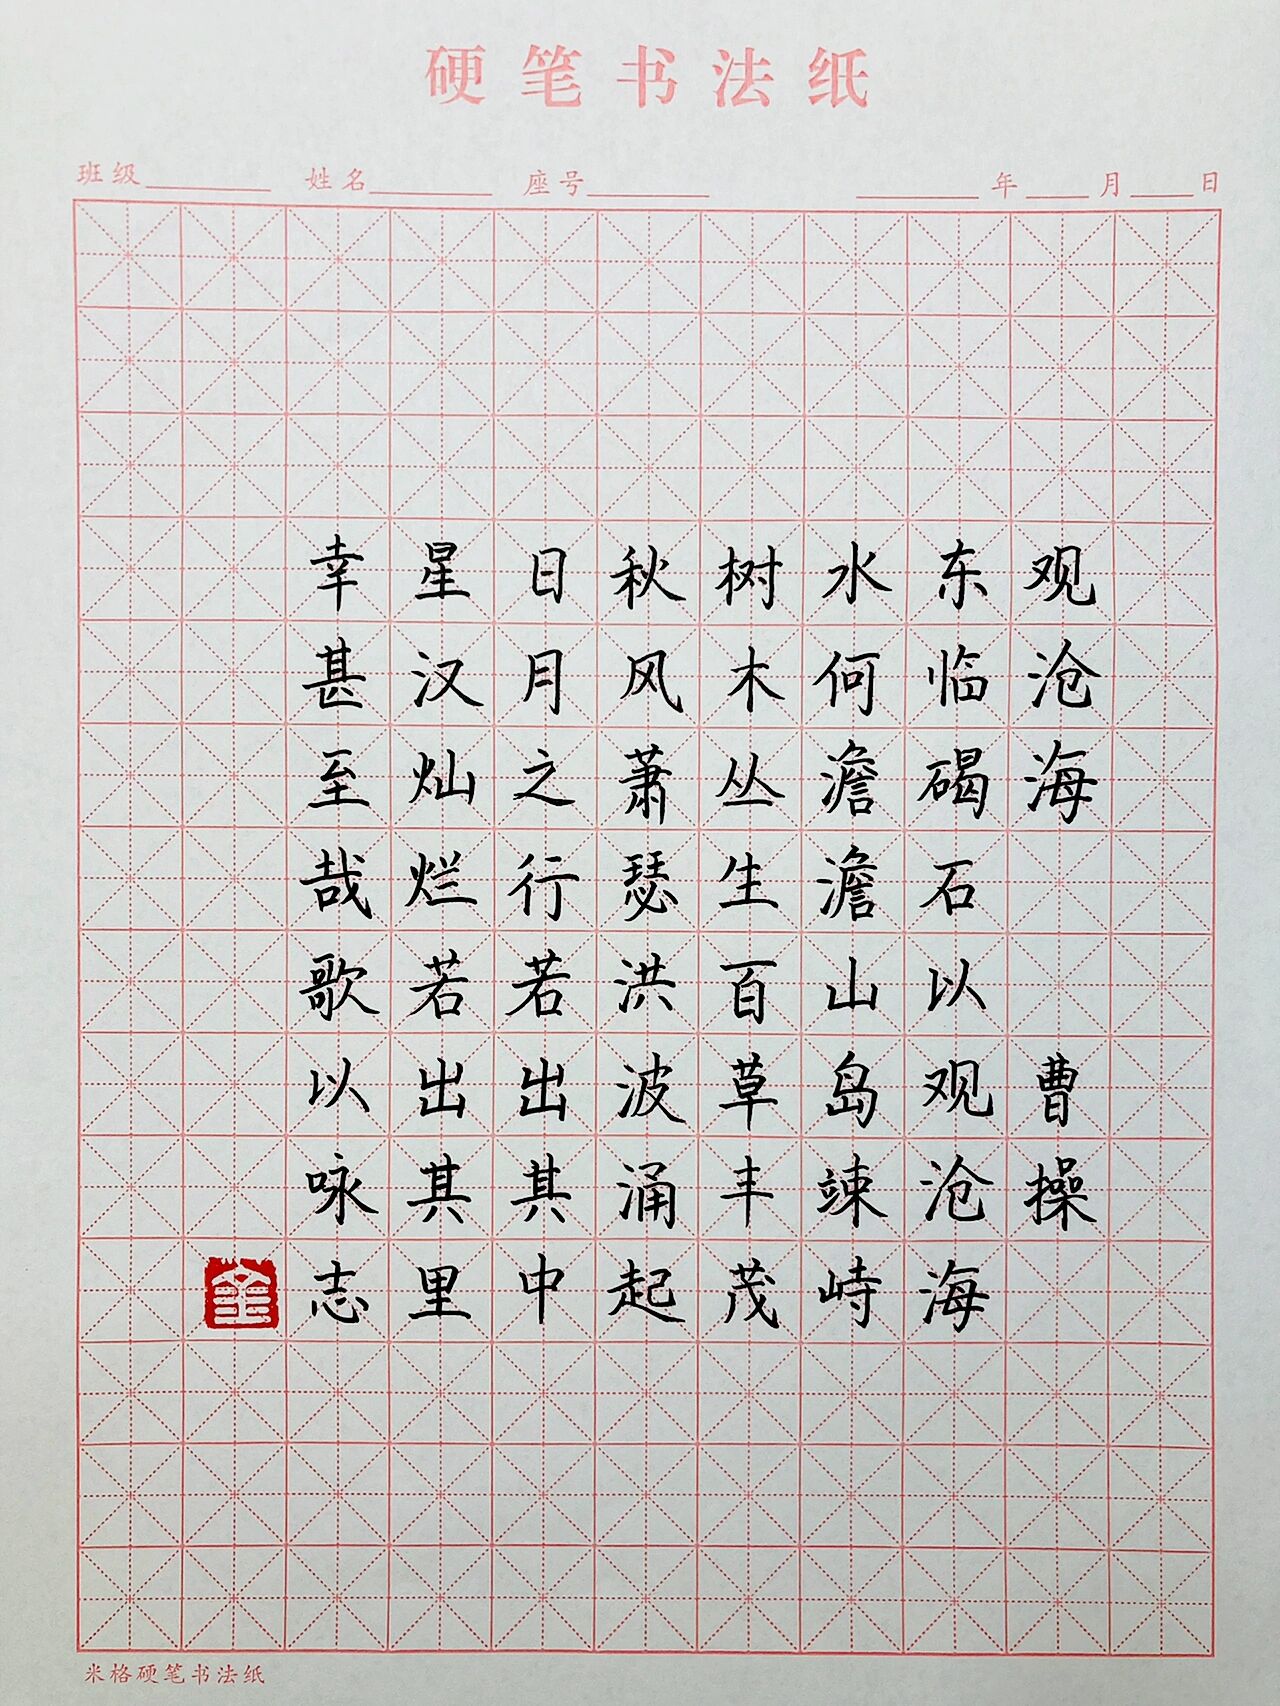 硬笔书法纸
班级 姓名 座号 年 月 日
观沧海 曹操
东临碣石以观沧海
水何澹澹山岛竦峙
树木丛生百草丰茂
秋风萧瑟洪波涌起
日月之行若出其中
星汉灿烂若出其里
幸甚至哉歌以咏志
米格硬笔书法纸